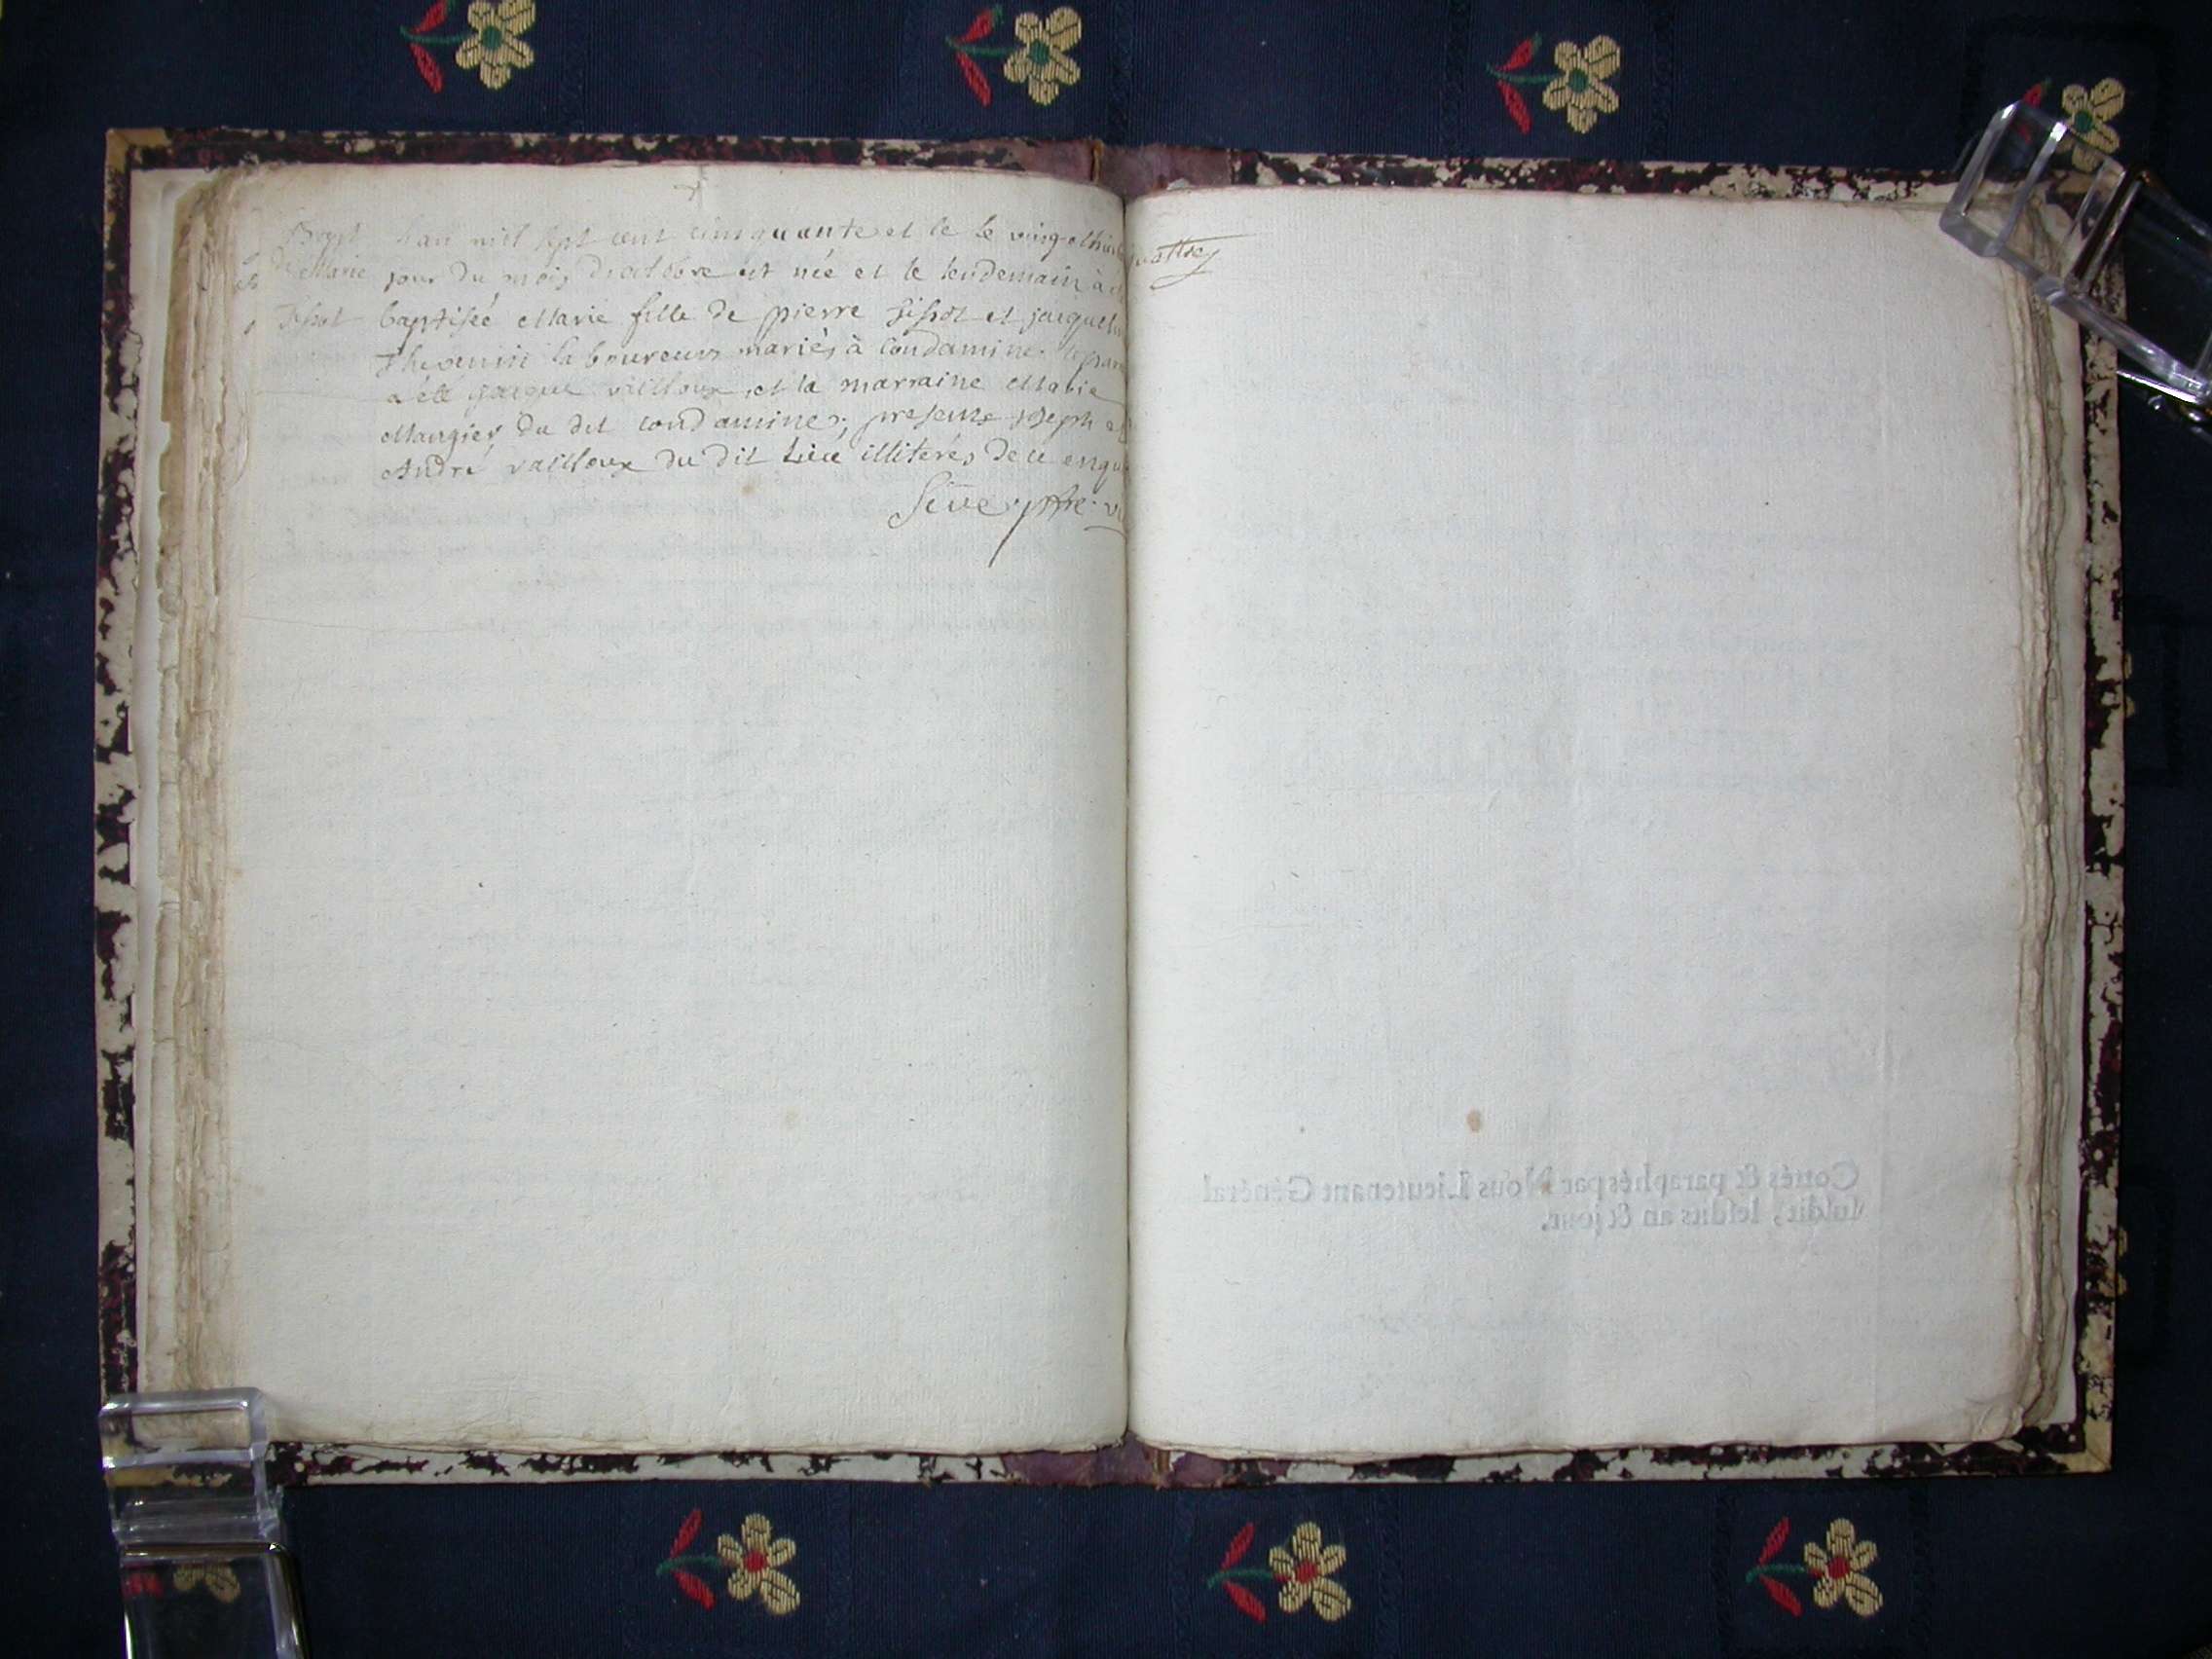 Bapt
de Marie
Tissot
L'an mil sept cent cinquante et le le vingt huit
jour du mois d'octobre est née et le lendemain à été
baptisée Marie fille de pierre Tissot et jacqueline
Thevenin laboureurs mariés à Condamine. le parr
a été jacque vailloux, et la marraine Marie
Maugier du dit condamine; presents joseph et
André vailloux du dit Lieu illiterés de ce enqui
Seive ptre vic
quattre
Cottés & paraphés par Nous Lieutenant Général
susdit, lesdits an & jour.